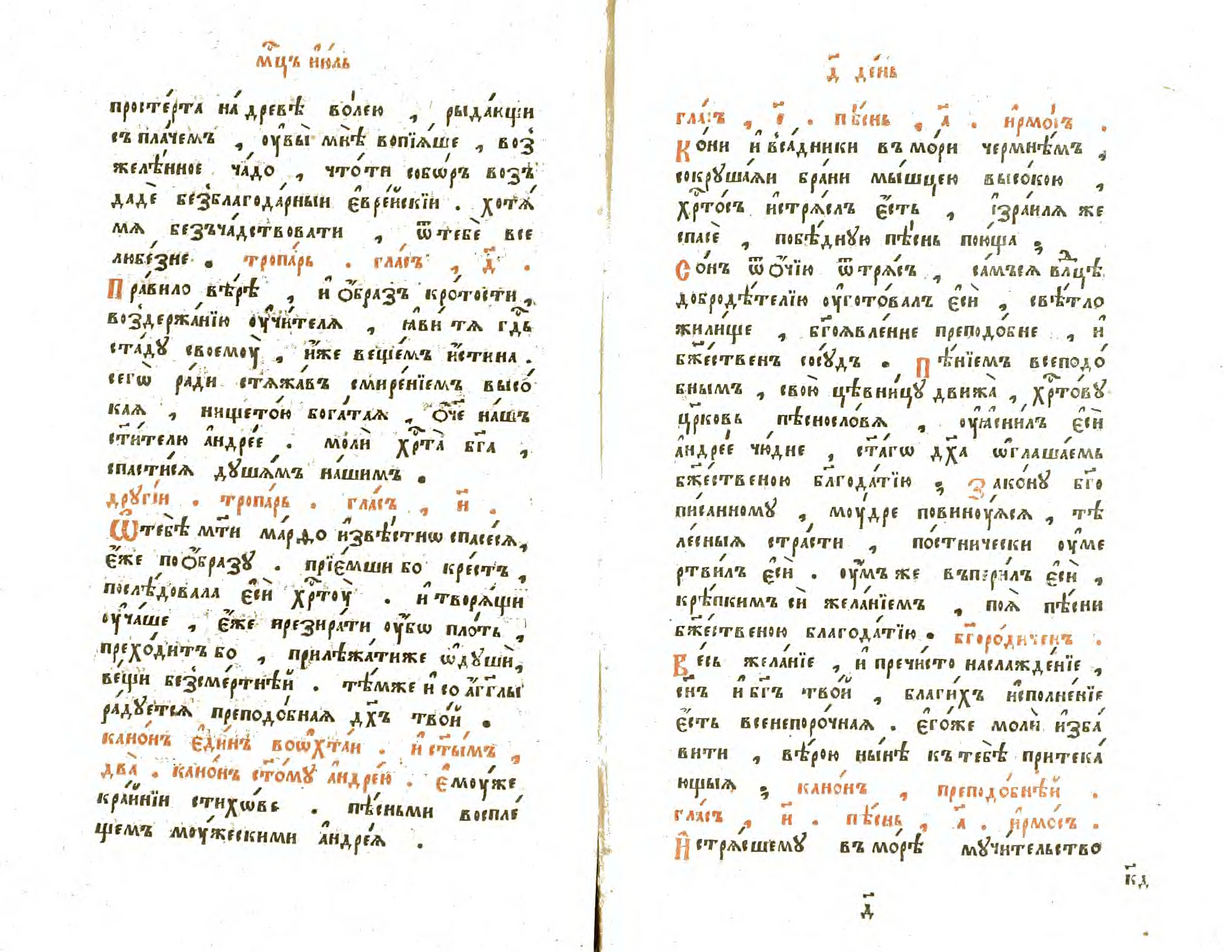 мⷭ҇цъ ию́ль
просте́рта на́ древѣ во́лею , рыда́ющи
съ пла́чемъ , оу҆вы̀ мнѣ̀ вопїѧ́ше , воз̾
желѣ́нное ча́до , что́ ти собѡ́ръ возъ
дадѐ без̾благода́рныи є҆вре́йскїи . хотѧ́
мѧ безъча́дствовати , ѿ тебѐ все
любе́зне . тропа́рь . гла́съ , д҃ .
Пра́вило вѣ́рѣ , и҆ ѻ҆́бразъ кро́тости ,
воздержа́нїю оу҆чи́телѧ , ꙗ҆ви́ тѧ гдⷭ҇ь
ста́ду своемоу̀ , и҆́же веще́мъ и҆́стина .
сегѡ̀ ра́ди стѧжа́въ смире́нїемъ высо́
каѧ , нището́ю бога́таѧ , ѻ҆́ч҃е на́шъ
ст҃и́телю а҆ндре́е . молѝ хрⷭ҇та̀ бг҃а ,
спасти́сѧ душа́мъ на́шимъ .
другі́и . тропа́рь . гла́съ , и҃ .
Ѿ тебѣ̀ мт҃и ма́рѳо и҆звѣ́стнѡ спасе́сѧ ,
є҆́же по ѻ҆́бразу . прїє́мши бо кре́стъ ,
послѣ́довала є҆сѝ хрⷭ҇тоу̀ . и҆ творѧ́щи
оу҆ча́ше , є҆́же презира́ти оу҆́бѡ пло́ть ,
прехо́дитъ бо , прилѣжа́тиже ѡ҆ душѝ ,
ве́щи без̾сме́ртнѣй . тѣ́мже и҆ со а҆́гг҃лы
ра́дуетсѧ преподо́бнаѧ дх҃ъ тво́й .
кано́нъ є҆ди́нъ во ѻ҆хта́и . и҆ ст҃ы́мъ ,
два̀ . кано́нъ ст҃о́му а҆ндре́ю . є҆моу́же
кра́йнїи стихѡ́ве . пѣ́сньми воспле́
щемъ моу́жескими а҆ндре́ѧ .
д҃ де́нь
гла́съ , є҃ . пѣ́снь , а҃ . и҆рмо́съ .
Ко́ни и҆ вса́дники въ мо́ри чермнѣ́мъ ,
сокруша́ѧи бра́ни мы́шцею высо́кою ,
хрⷭ҇то́съ и҆стрѧ́слъ є҆́сть , і҆зра́илѧ же
спасѐ , побѣ́дную пѣ́снь пою́ща ;
Со́нъ ѿ ѻ҆́чїю ѿтрѧ́съ , са́мъсѧ влⷣцѣ
добродѣ́телїю оу҆гото́валъ є҆сѝ , свѣ́тло
жили́ще , бг҃оѧвле́ние преподо́бне , и҆
бж҃е́ственъ сосу́дъ . Пѣ́нїемъ всеподо́
бнымъ , свою̀ цѣ́вницу движа̀ , хрⷭ҇то́ву
цр҃ковь пѣсносло́вѧ , оу҆ꙗснилъ є҆сѝ
а҆ндре́е чю́дне , ст҃а́гѡ дх҃а ѡ҆глаша́емь
бж҃е́ственою бл҃года́тїю ; Зако́ну бг҃о
пи́санному , моу́дре повиноу́ѧсѧ , тѣ
ле́сныѧ стра́сти , по́стнически оу҆ме
ртви́лъ є҆сѝ . оу҆́мъ же въпери́лъ є҆сѝ ,
крѣ́пкимъ сѝ жела́нїемъ , поѧ̀ пѣ́сни
бж҃е́ственою благода́тїю . бг҃оро́диченъ .
Ве́сь жела́нїе , и҆ пречи́сто наслажде́нїе ,
сн҃ъ и҆ бг҃ъ тво́й , благи́хъ и҆сполне́нїе
є҆́сть всенепоро́чнаѧ . є҆го́же молѝ и҆зба́
вити , вѣ́рою ны́нѣ къ тебѣ̀ притека́
ющыѧ ; кано́нъ , преподо́бнѣй .
гла́съ , и҃ . пѣ́снь , а҃ . и҆рмо́съ .
И҆стрѧ́сшему въ мо́рѣ мучи́тельство
к҃д
д҃